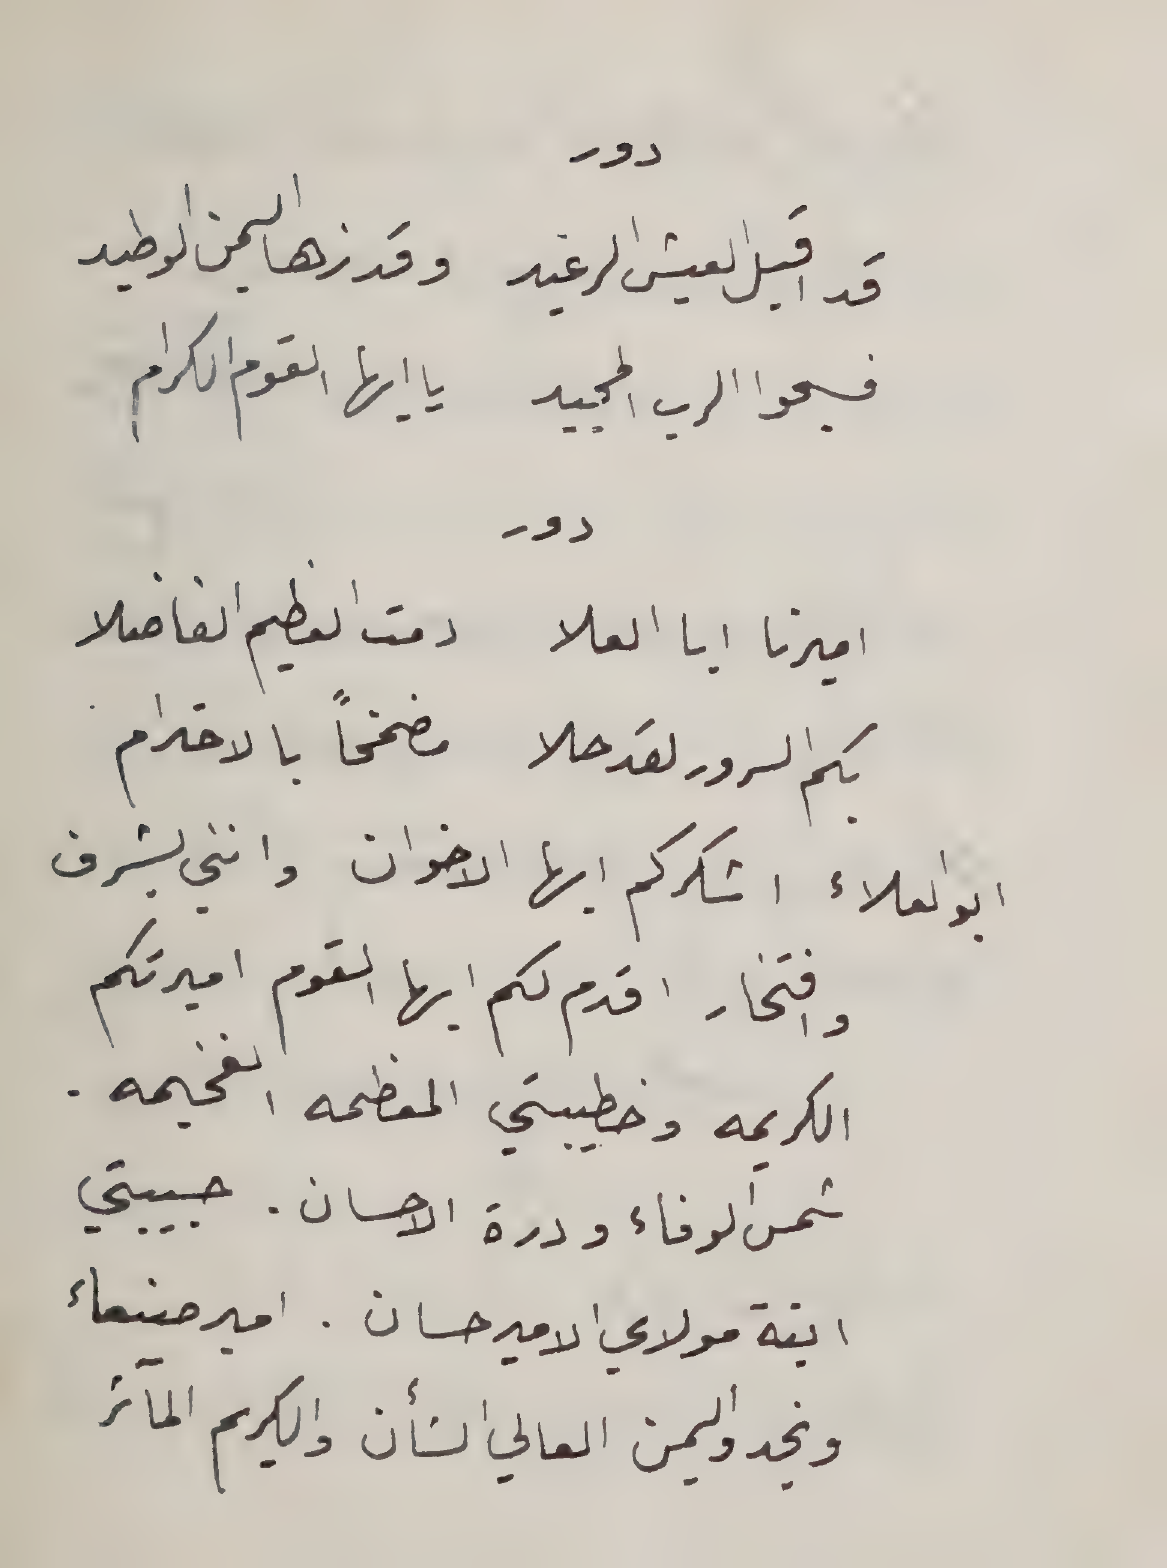 دور
قد اقبل العيش الرغيد وقد زها اليمن الوطيد
فسبحوا الرب المجيد يا ايها القوم الكرام
دور
اميرنا ابا العلا دمت العظيم الفاضلا
بكم السرور لقد حلا مضمخاً بالاحترام
ابو العلاء اشكركم ايها الاخوان وانني بشرف
وافتخار اقدم لكم ايها القوم اميرتكم
الكريمه وخطيبتي المعظمه الفخيمه .
شمس الوفاء ودرة الاحسان . حبيبتي
ابنة مولاي الامير حسان . امير صنعاء
ونجد واليمن العالي الشأن والكريم المآثر